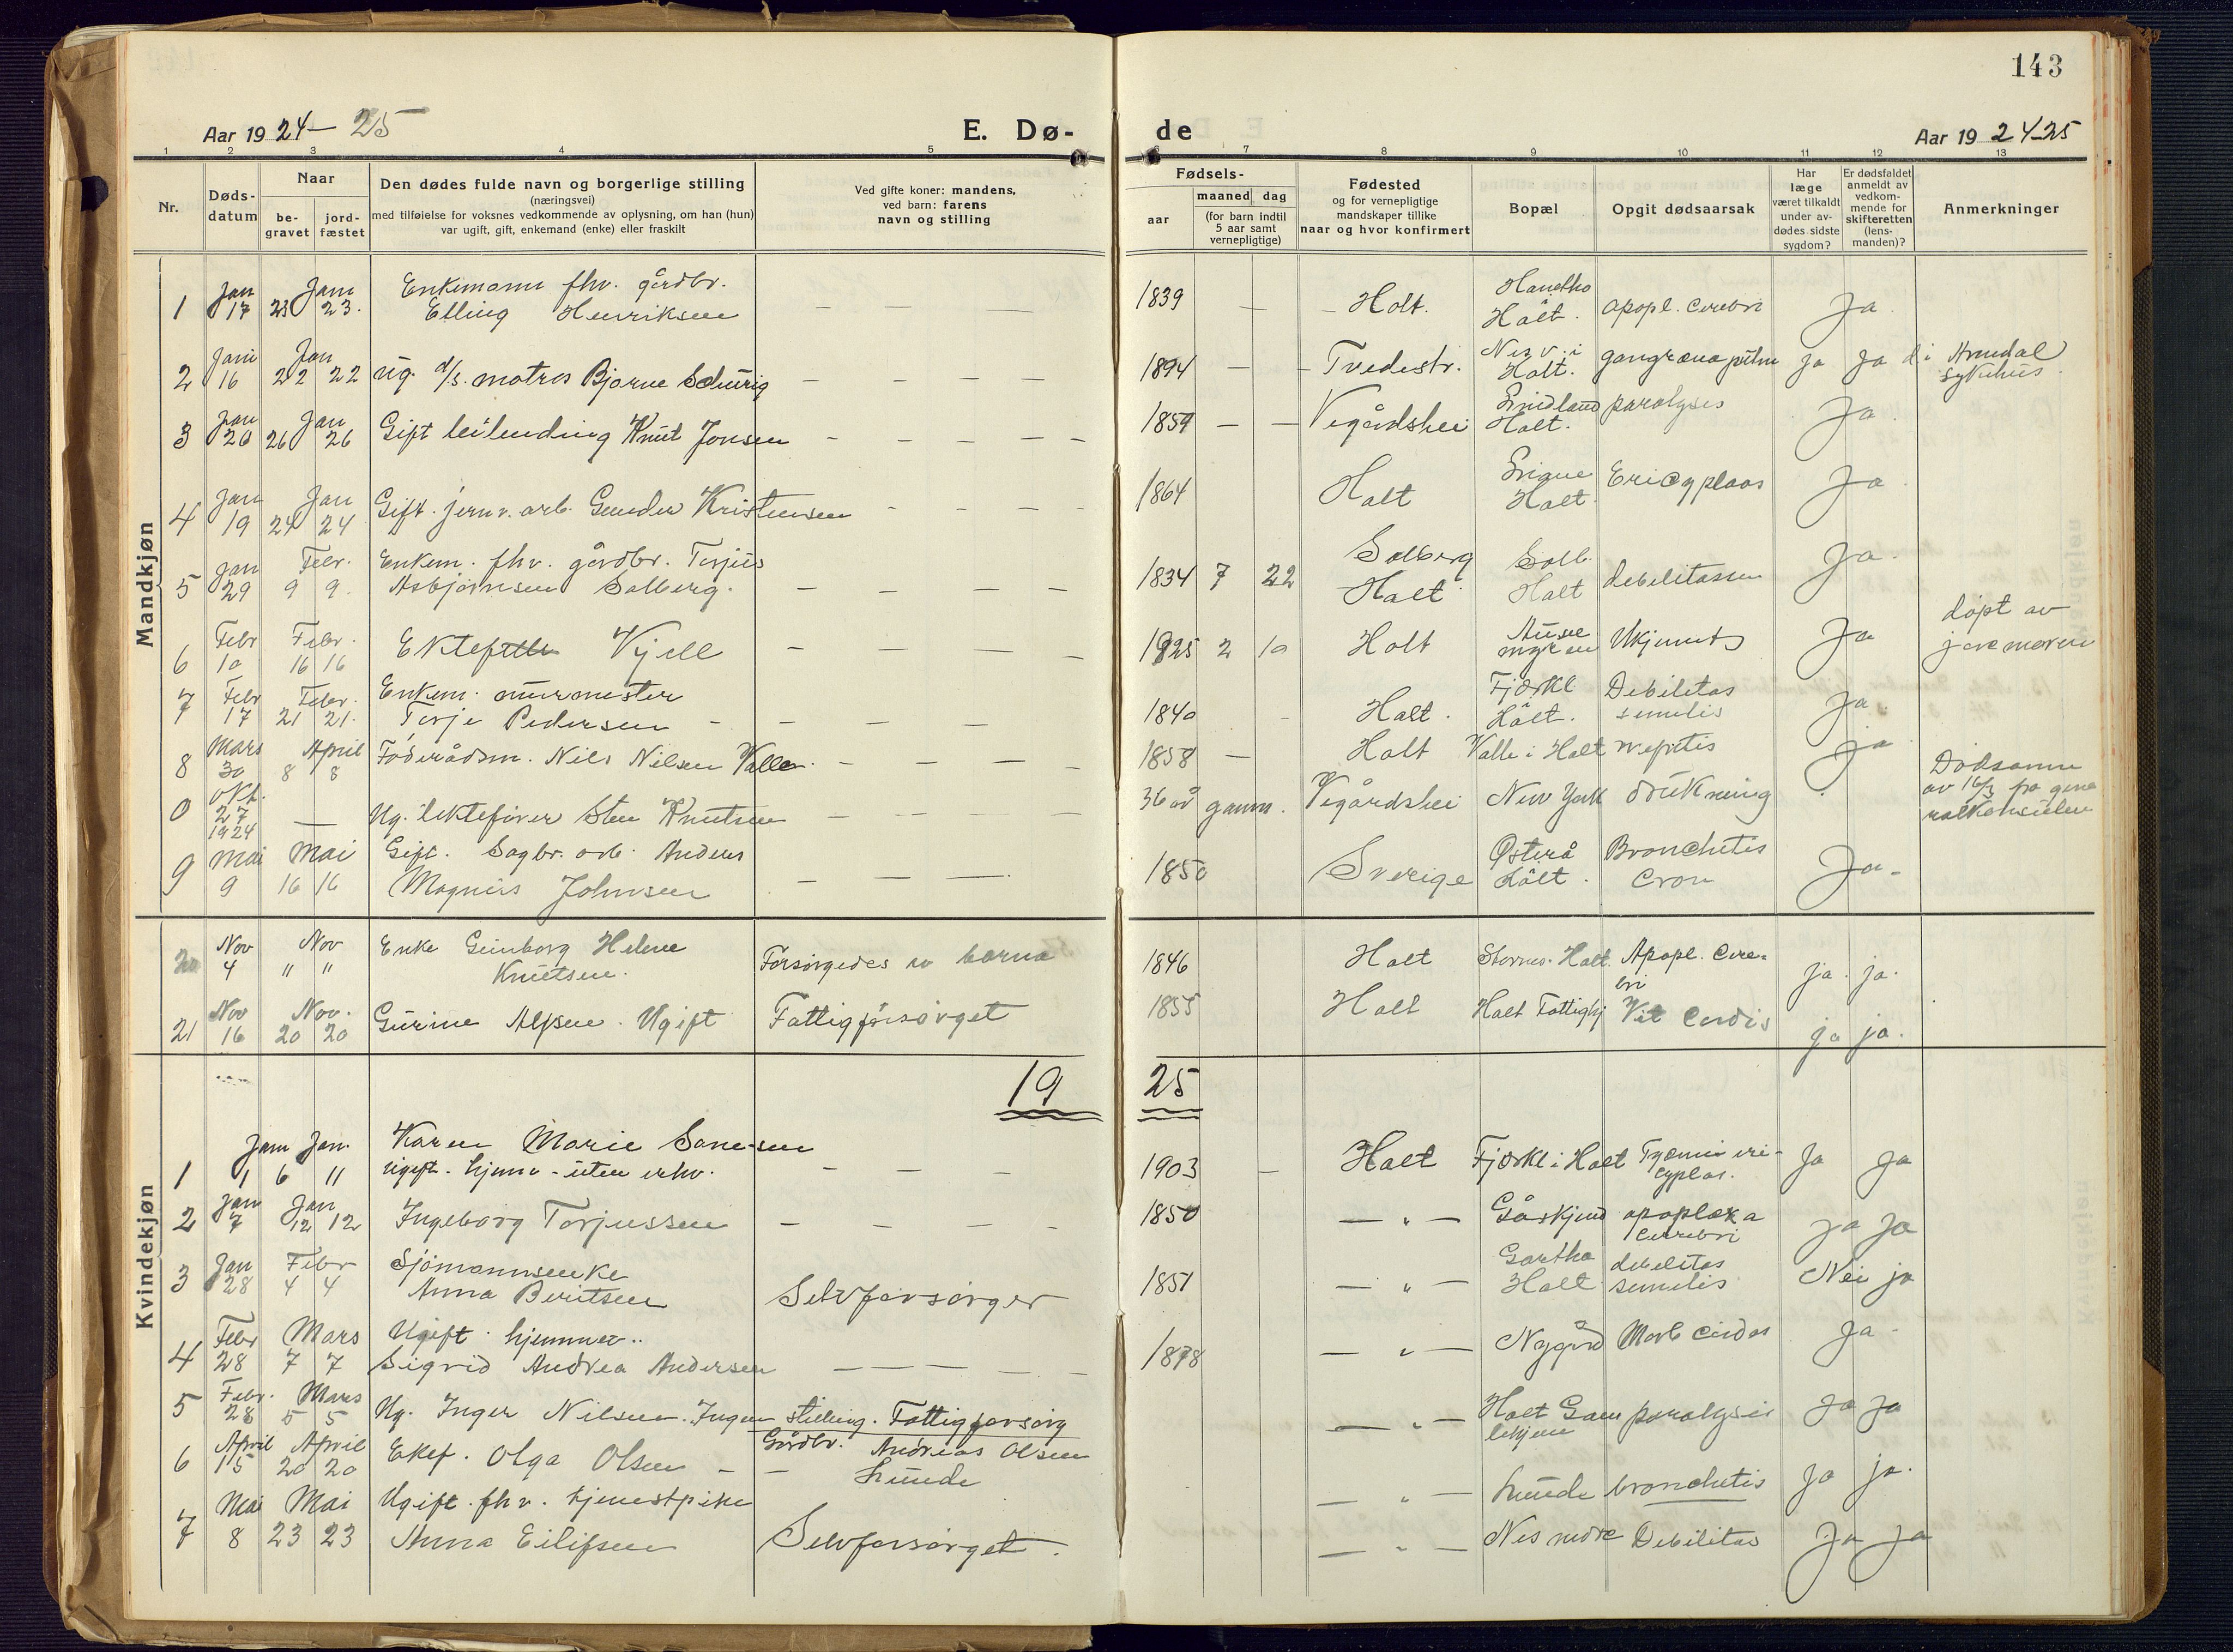 143
Aar 1924-25
E. Dø-
de
Aar 1924-25
1 2 3 4 5
6 7 8 9 10 11 12 13
Nr.
Døds-
datum
Naar
be-
gravet
jord-
fæstet
Den dødes fulde navn og borgerlige stilling
(næringsvei)
med tilføielse for voksnes vedkommende av oplysning, om han (hun)
var ugift, gift, enkemand (enke) eller fraskilt
Ved gifte koner: mandens,
ved barn: farens
navn og stilling
Fødsels-
aar
maaned dag
(for barn indtil
5 aar samt
vernepligtige)
Fødested
og for vernepligtige
mandskaper tillike
naar og hvor konfirmert
Bopæl
Opgit dødsaarsak
Har
læge
været tilkaldt
under av-
dødes sidste
sygdom?
Er dødsfaldet
anmeldt av
vedkom-
mende for
skifteretten
(lens-
manden)?
Anmerkninger
Mandkjøn
1 Jan 17 Jan 23 23. Enkemann fhv. gårdbr.
Elling Henriksen — — — 1839 — — Holt. Holt. apopl. cerebri Ja
2 Jan 16 Jan 22 22 Ug. d/s. matros Bjarne — — — — 1894 — — Tvedestr. Nes v. i
Holt. gangræna pulm ja ja d i Arendal
sykehus.
3 Jan 20 Jan 26 26 Gift leilending Knut Jonsen — — — — 1859 — — Vegårdshei Holt. paralyses Ja
4 Jan 19 Jan 24 24 Gift. jernv. arb. Gunder Kristensen — — — 1864 Holt Holt Ja
5 Jan 29 Febr. 9 9. Enkem. fhv. gårdbr. Terjus
Asbjørnsen Solberg. — — — — 1834 7 22 Solberg
Holt Solb.
Holt debilitassen Ja
6 Febr 10 Febr. 16 16 Kjell — — — — 1925 2 10 Holt Ukjent Ja døpt av
joremoren
7 Febr 17 Febr. 21 21. Enkem. murmester
Terje Pedersen — — — — 1840 Holt. Fjærkl
Holt. Debilitas
senilis Ja
8 Mars 30 April 8 8 Føderådsm. Nils Nilsen Valle. — — — — 1858 — Holt Valle i Holt nefritis ja
0 Okt. 27 1924 — Ug. Sten Knutsen — — — — 36 år gamm. Vegårdshei New York drukning Dødsanm
av 16/3 fra gene
ralkonsulen
9 Mai 9 Mai 16 16 Gift. Sagbr. arb. Anders
Magnus Johnsen — — — 1850 Sverige Østerå
Holt. Bronchitis
Cron Ja.
20 Nov 4 Nov " " Enke Gunborg Helene
Knutsen. Forsørgedes av barna 1846 Holt Holt. Apopl. Cere-
bri ja. ja.
21 Nov 16 Nov. 20 20 Gurine Alfsen. Ugift Fattigforsørget 1855 Holt Holt Fattighj Vit Cordis ja ja.
19 25
Kvindekjøn
1 Jan 1 Jan. 6 11 Karen Marie
ugift. hjemv - uten erhv. — — — 1903 — Holt Fjærkl i Holt eri-
cyplas. Ja Ja
2 Jan 7 Jan 12 12 Ingeborg Torjussen — — — — 1850 — " — Gåskjend apoplexa
cerebri ja Ja
3 Jan 28 Febr 4 4 Sjømannsenke
Anna Beritsen Selvforsørger 1851 — " — Gartha
Holt debilitas
senilis Nei ja
4 Febr 28 Mars 7 7 Ugift. hjemmev..
Sigrid Andrea Andersen — — — — 1878 — " — Nygård Morb Cordas Ja
5 Febr. 28 Mars 5 5 Ug. Inger Nilsen. Ingen stilling. Fattigforsørg — " — Holt Gam
lehjem paralysis Ja Ja
6 April 15 April 20 20 Ektf. Olga Olsen — — Gårdbr. Andreas Olsen
Lunde — " — Lunde bronchitis Ja ja.
7 Mai 8 Mai 23 23 Ugift. fhv. tjenestpike
Anna Eilifsen Selvforsørget. — " — Nes nedre Debilitas Ja Ja